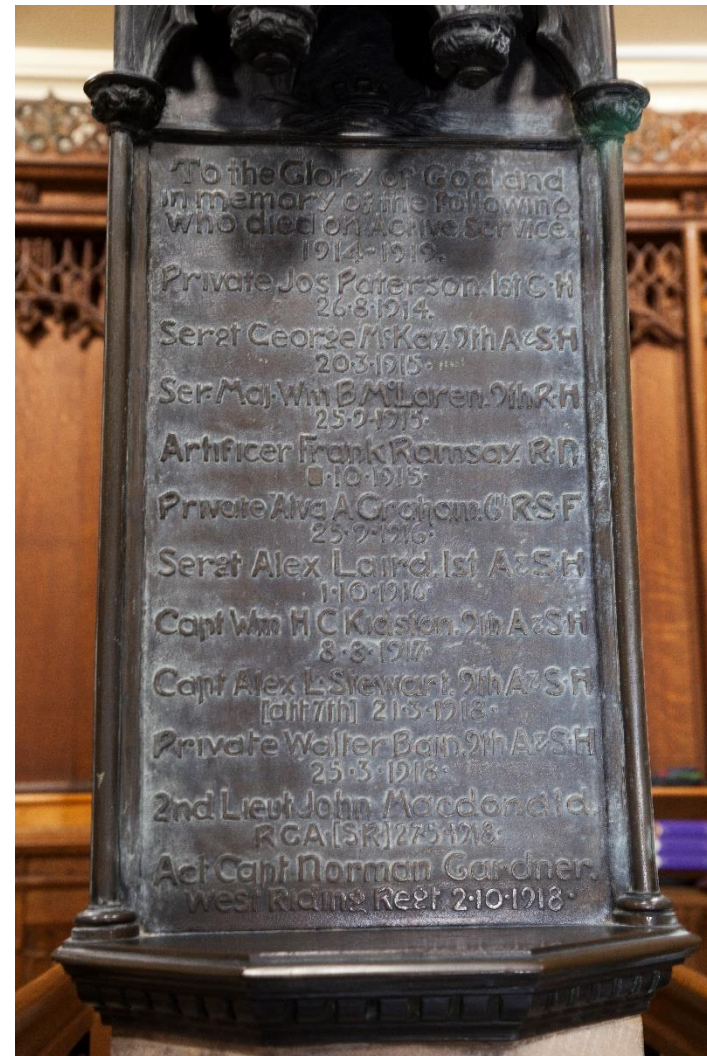 To the Glory of God and
in memory of the following
who died on Active Service.
1914-1919.
Private Jos Paterson. 1st C·H
26·8·1914.
Sergt George McKay. 9th A&S·H
20·3·1915·
Ser·Maj·Wm B McLaren. 9th R·H
25·9·1915·
Artificer Frank Ramsay. R·N
·10·1915·
Private Alva A Graham. R·S·F
25·9·1916·
Sergt Alex Laird. 1st A&S·H
1·10·1916·
Capt Wm H C Kidston. 9th A&S·H
8·8·1917·
Capt Alex L·Stewart. 9th A&S·H
[att 7th] 21·3·1918·
Private Walter Bain. 9th A&S·H
25·3·1918·
2nd Lieut John Macdonald.
RGA [SR] 27·5·1918·
Act Capt Norman Gardner.
West Riding Regt 2·10·1918·